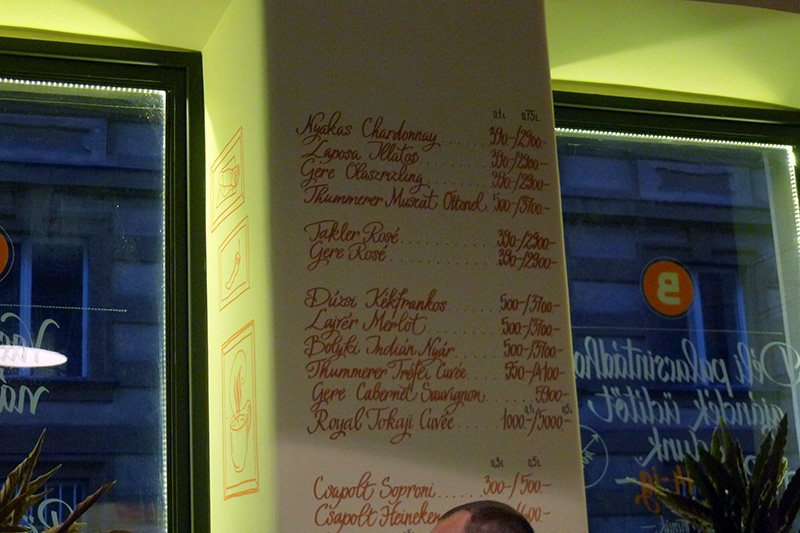 0,1L 0,75L
Nyakas Chardonnay ........ 390-/2900-
Laposa Illatos ........ 390-/2900-
Gere Olaszrizling ........ 390-/2900-
Thummerer Muscat Ottonel 500-/3700-
Takler Rosé ........ 390-/2900-
Gere Rosé ........ 390-/2900-
Dúzsi Kékfrankos ........ 500-/3700-
Lajvér Merlot ........ 500-/3700-
Botyki Indián Nyár ........ 500-/3700-
Thummerer Tréfli Cuvée ..... 550-/4100-
Gere Cabernet Sauvignon ........ 5900-
0,1L 0,5L
Royal Tokaji Cuvée ........ 1000-/5000-
0,3L 0,5L
Csapolt Soproni ........ 300-/500-
Csapolt Heineken /600-
B
Déli palacsintádho
ajándék üdítőt